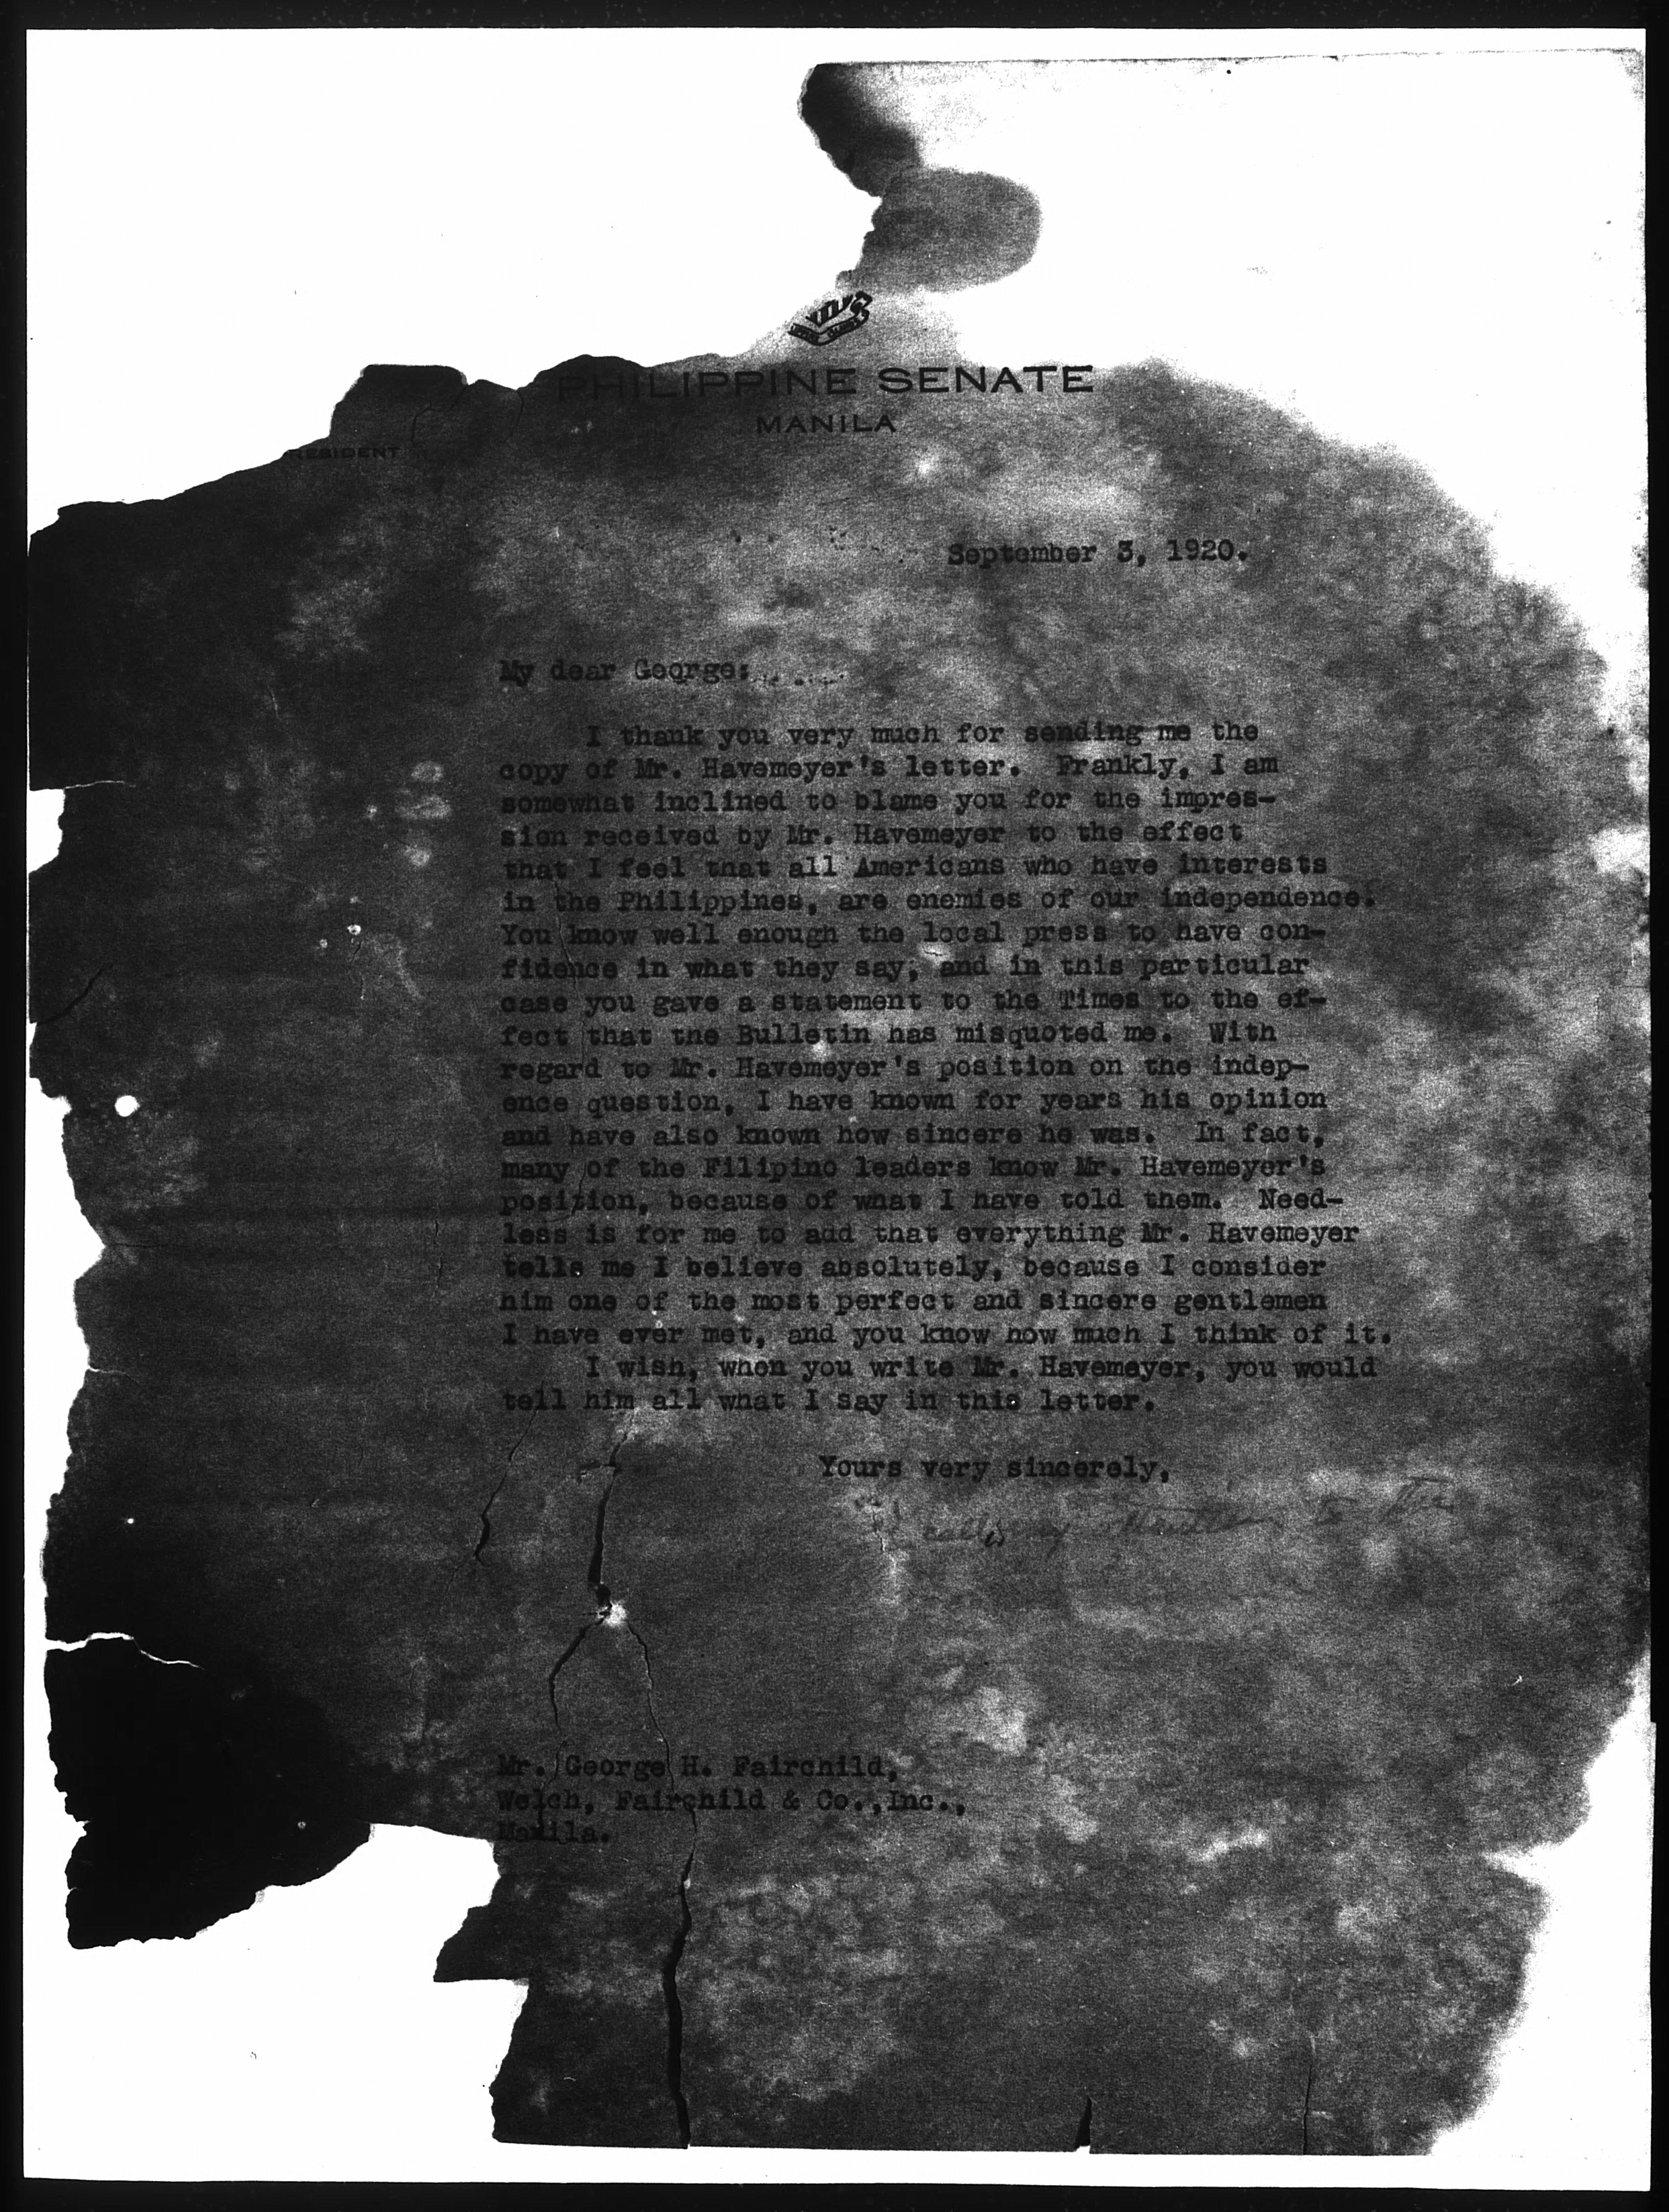 PHILIPPINE SENATE
MANILA
RESIDENT
September 3, 1920.
My dear George:
I thank you very much for sending me the
copy of Mr. Havemeyer's letter. Frankly, I am
somewhat inclined to blame you for the impres-
sion received by Mr. Havemeyer to the effect
that I feel that all Americans who have interests
in the Philippines, are enemies of our independence.
You know well enough the local press to have con-
fidence in what they say; and in this particular
case you gave a statement to the Times to the ef-
fect that the Bulletin has misquoted me. With
regard to Mr. Havemeyer's position on the indep-
ence question, I have known for years his opinion
and have also known how sincere he was. In fact,
many of the Filipino leaders know Mr. Havemeyer's
position, because of what I have told them. Need-
less is for me to add that everything Mr. Havemeyer
tells me I believe absolutely, because I consider
him one of the most perfect and sincere gentlemen
I have ever met, and you know how much I think of it.
I wish, when you write Mr. Havemeyer, you would
tell him all what I say in this letter.
Yours very sincerely,
call my attention to the
Mr. George H. Fairchild,
Welch, Fairchild & Co.,Inc.,
Manila.